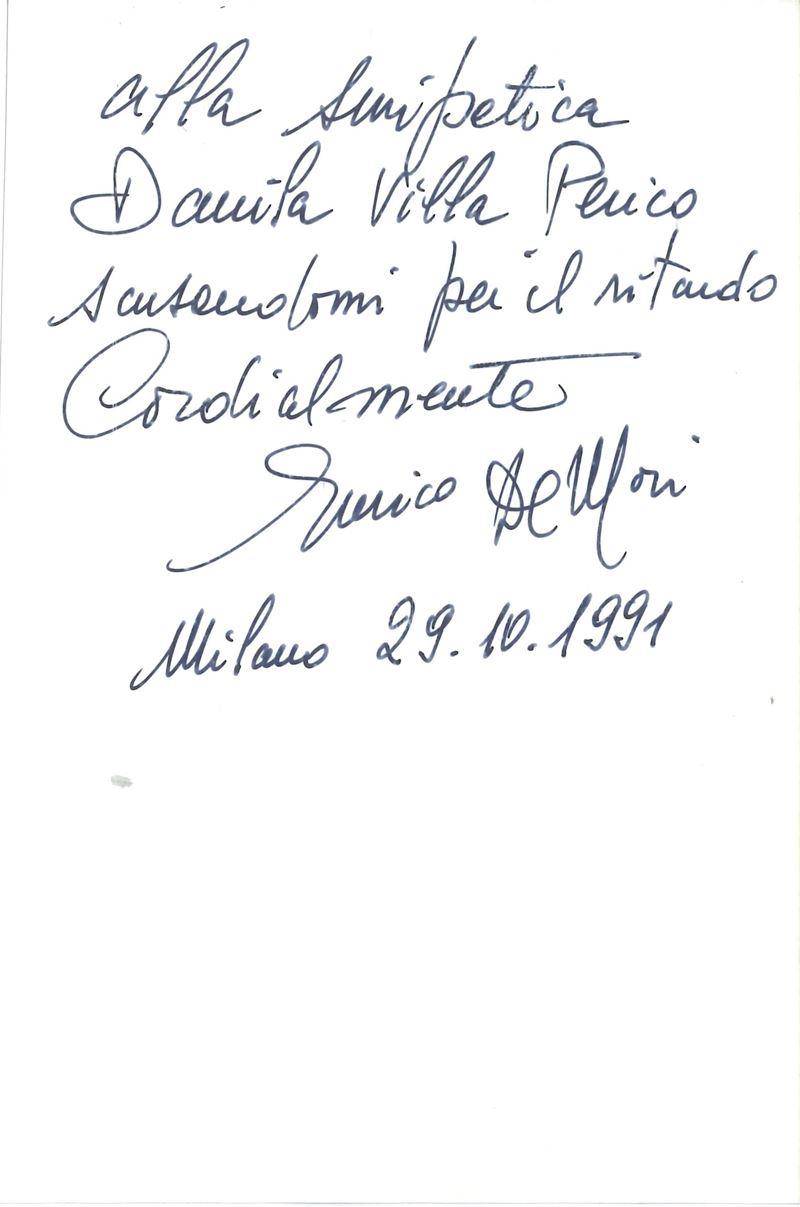 alla simpatica
Danila Villa Perico
scusandomi per il ritardo
Cordialmente
Enrico De Mori
Milano 29.10.1991